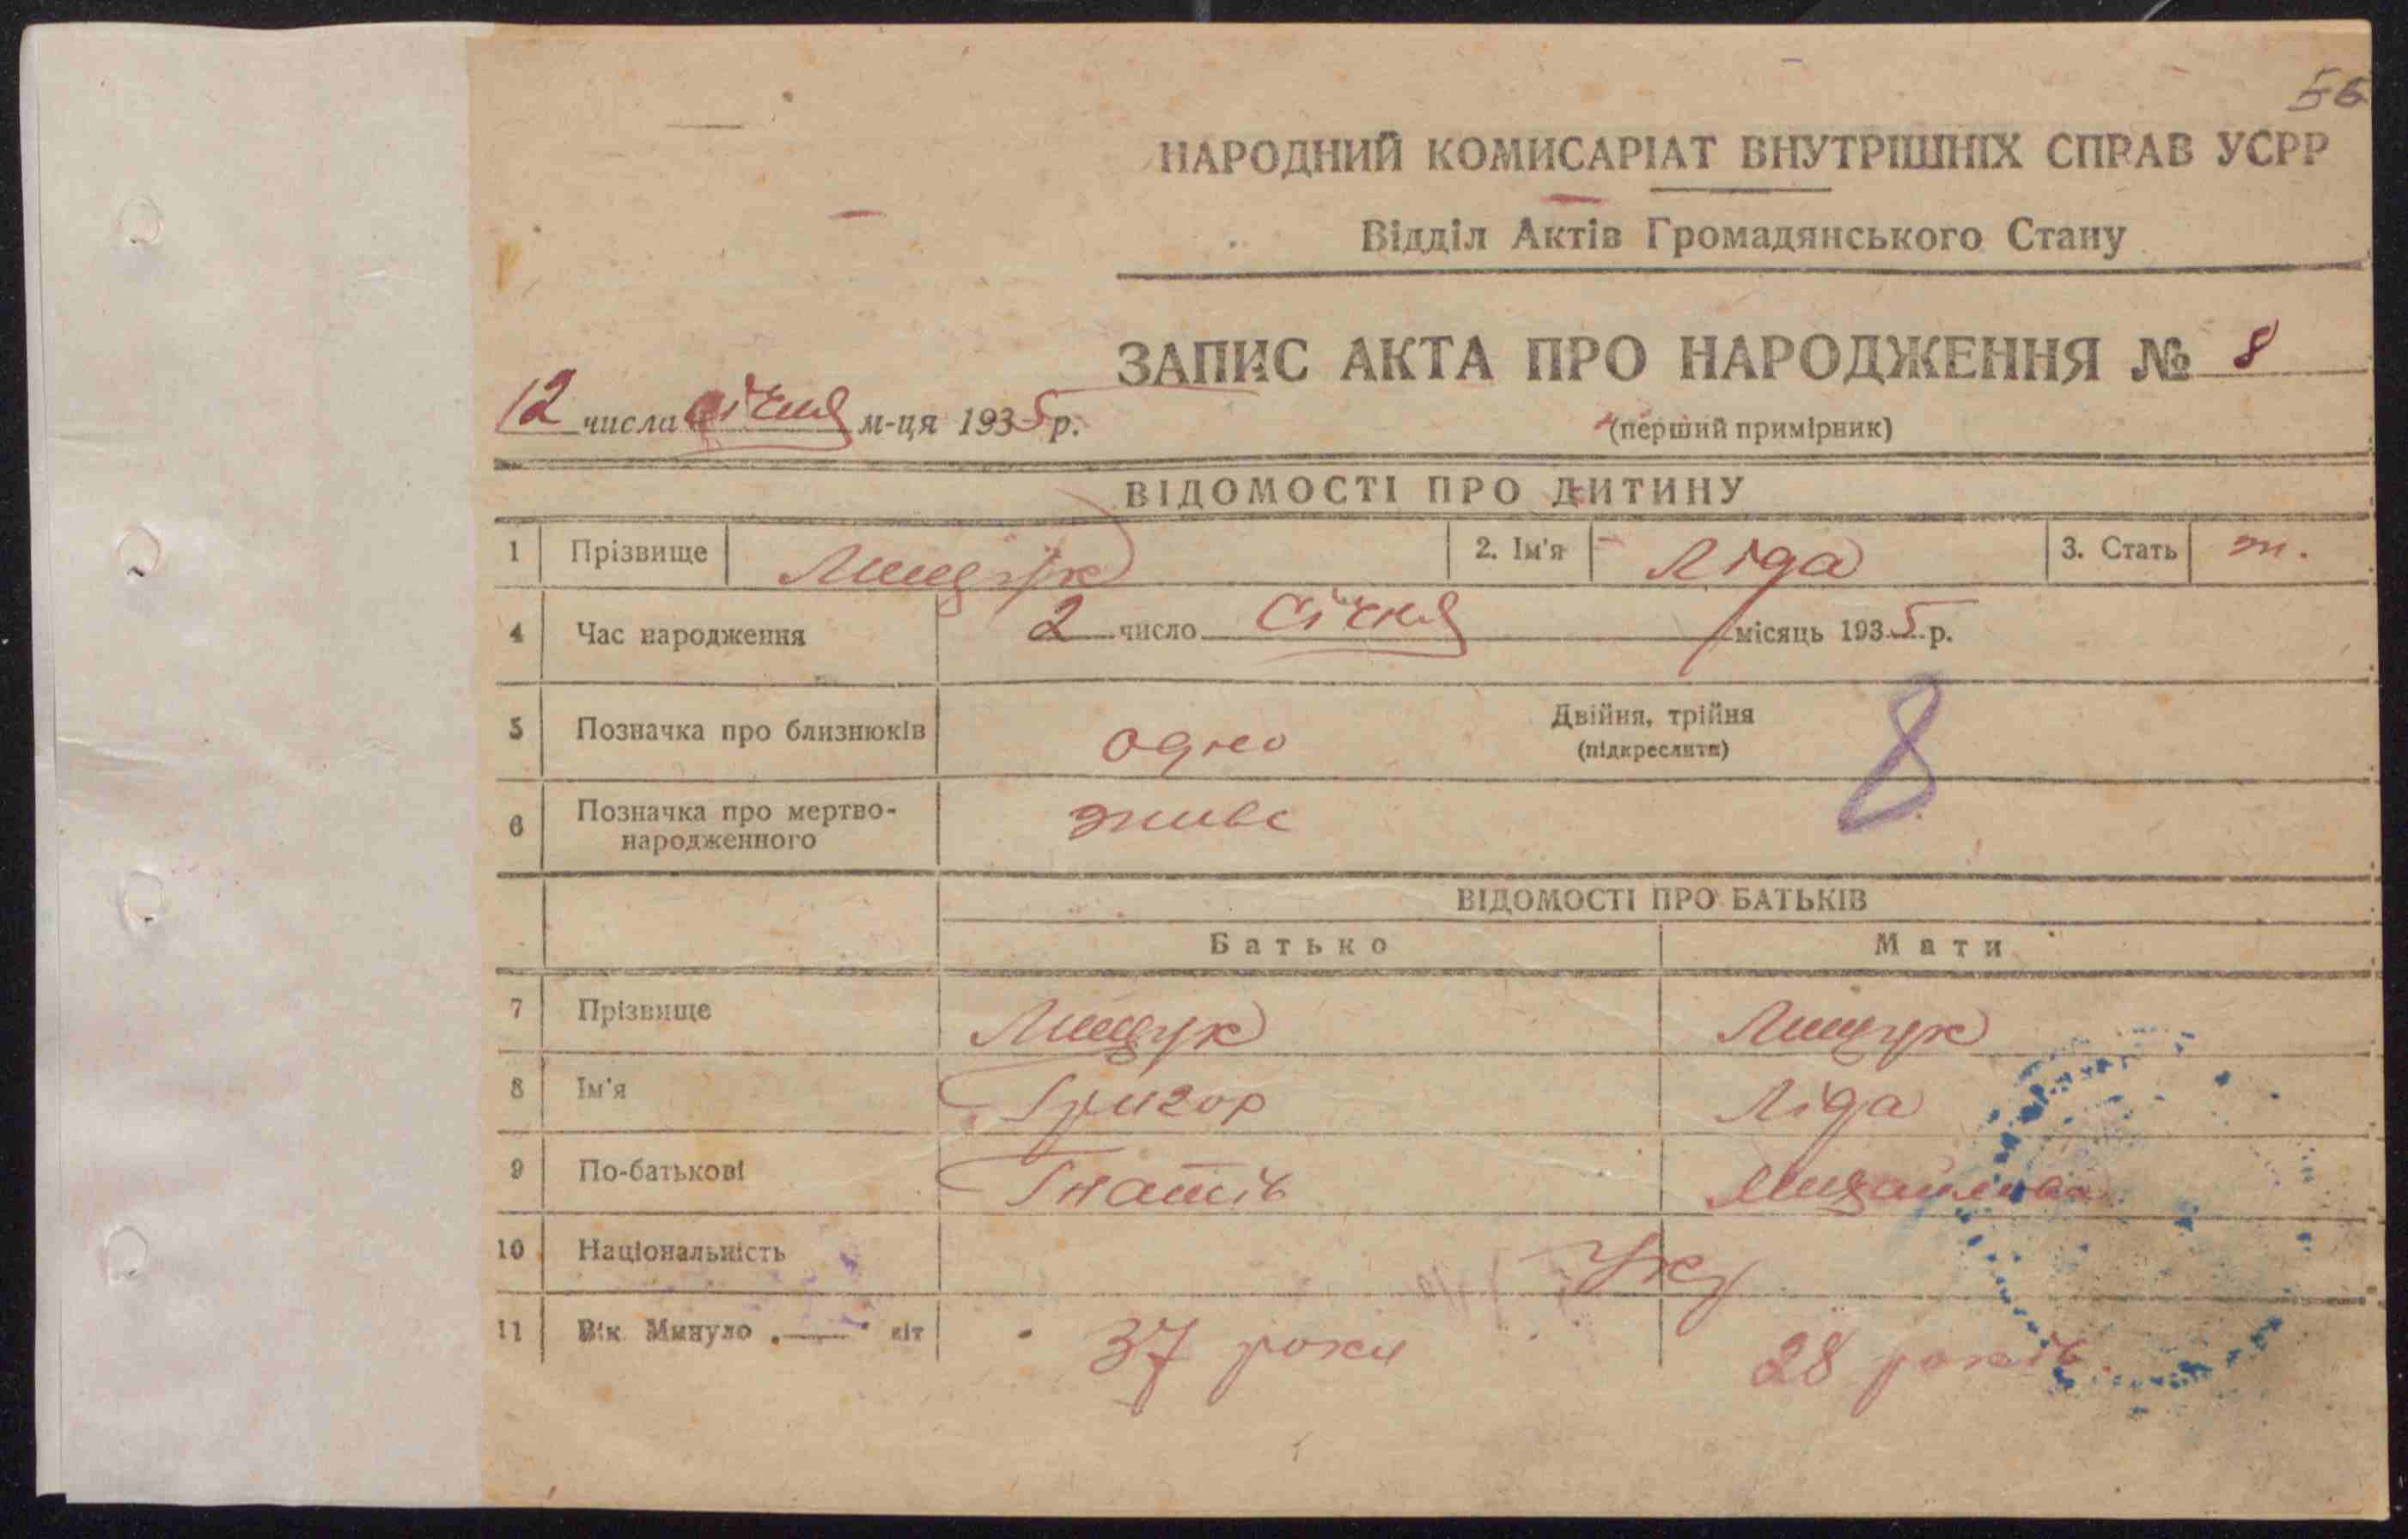 56
НАРОДНИЙ КОМИСАРІАТ ВНУТРІШНІХ СПРАВ УСРР
Відділ Актів Громадянського Стану
ЗАПИС АКТА ПРО НАРОДЖЕННЯ № 8
12 числа січня м-ця 1935 р.
(перший примірник)
ВІДОМОСТІ ПРО ДИТИНУ
1 Прізвище Лищук 2. Ім'я Ліда 3. Стать ж.
4 Час народження 2 число січня місяць 1935 р.
5 Позначка про близнюків одно Двійня, трійня
(підкреслити)
8
6 Позначка про мертво-
народженного живе
ВІДОМОСТІ ПРО БАТЬКІВ
Батько Мати
7 Прізвище Лищук Лищук
8 Ім'я Григор Ліда
9 По-батькові Гнатів Михайлова
10 Національність Укр
11 Вік Минуло . — літ 37 роки 28 років